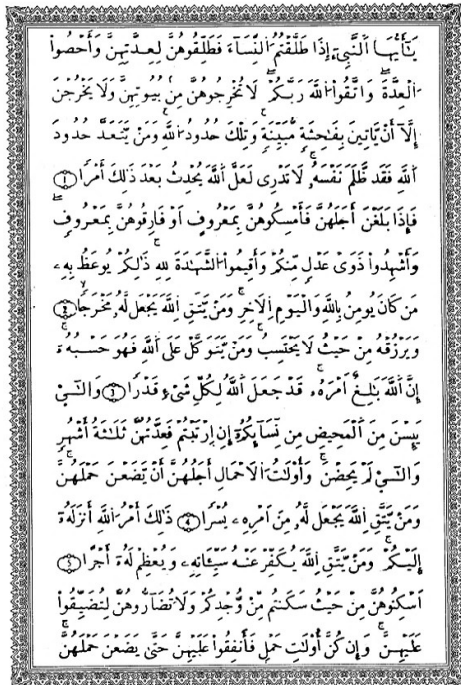 يَٰٓأَيُّهَا اَ۬لنَّبِيٓءُ اِ۪ذَا طَلَّقْتُمُ اُ۬لنِّسَآءَ فَطَلِّقُوهُنَّ لِعِدَّتِهِنَّ وَأَحْصُواْ
اُ۬لْعِدَّةَۖ وَاتَّقُواْ اُ۬للَّهَ رَبَّكُمْۖ لَا تُخْرِجُوهُنَّ مِنۢ بُيُوتِهِنَّ وَلَا يَخْرُجْنَ
إِلَّآ أَنْ يَّاتِينَ بِفَٰحِشَةٖ مُّبَيِّنَةٖۖ وَتِلْكَ حُدُودُ اُ۬للَّهِۖ وَمَنْ يَّتَعَدَّ حُدُودَ
اَ۬للَّهِ فَقَد ظَّلَمَ نَفْسَهُۥۖ لَا تَدْرِے لَعَلَّ اَ۬للَّهَ يُحْدِثُ بَعْدَ ذَٰلِكَ أَمْراٗ ١
فَإِذَا بَلَغْنَ أَجَلَهُنَّ فَأَمْسِكُوهُنَّ بِمَعْرُوفٍ اَوْ فَارِقُوهُنَّ بِمَعْرُوفٖۖ
وَأَشْهِدُواْ ذَوَےْ عَدْلٖ مِّنكُمْ وَأَقِيمُواْ اُ۬لشَّهَٰدَةَ لِلهِۖ ذَٰلِكُمْ يُوعَظُ بِهِۦ
مَن كَانَ يُومِنُ بِاللَّهِ وَالْيَوْمِ اِ۬لَاخِرِۖ وَمَنْ يَّتَّقِ اِ۬للَّهَ يَجْعَل لَّهُۥ مَخْرَجاٗ ٢
وَيَرْزُقْهُ مِنْ حَيْثُ لَا يَحْتَسِبُۖ وَمَنْ يَّتَوَكَّلْ عَلَى اَ۬للَّهِ فَهُوَ حَسْبُهُۥٓۖ
إِنَّ اَ۬للَّهَ بَٰلِغٌ اَمْرَهُۥۖ قَدْ جَعَلَ اَ۬للَّهُ لِكُلِّ شَےْءٖ قَدْراٗ ٣ وَالَّٰٓـِٔے
يَئِسْنَ مِنَ اَ۬لْمَحِيضِ مِن نِّسَآئِكُمُۥٓ إِنِ اِ۪رْتَبْتُمْ فَعِدَّتُهُنَّ ثَلَٰثَةُ أَشْهُرٖ
وَالَّٰٓـِٔے لَمْ يَحِضْنَۖ وَأُوْلَٰتُ اُ۬لَاحْمَالِ أَجَلُهُنَّ أَنْ يَّضَعْنَ حَمْلَهُنَّۖ
وَمَنْ يَّتَّقِ اِ۬للَّهَ يَجْعَل لَّهُۥ مِنَ اَمْرِهِۦ يُسْراٗ ٤ ذَٰلِكَ أَمْرُ اُ۬للَّهِ أَنزَلَهُۥٓ
إِلَيْكُمْۖ وَمَنْ يَّتَّقِ اِ۬للَّهَ يُكَفِّرْ عَنْهُ سَيِّـَٔاتِهِۦ وَيُعْظِمْ لَهُۥٓ أَجْراًۖ ٥
اَسْكِنُوهُنَّ مِنْ حَيْثُ سَكَنتُم مِّنْ وُّجْدِكُمْ وَلَا تُضَآرُّوهُنَّ لِتُضَيِّقُواْ
عَلَيْهِنَّۖ وَإِن كُنَّ أُوْلَٰتِ حَمْلٖ فَأَنفِقُواْ عَلَيْهِنَّ حَتَّىٰ يَضَعْنَ حَمْلَهُنَّۖ